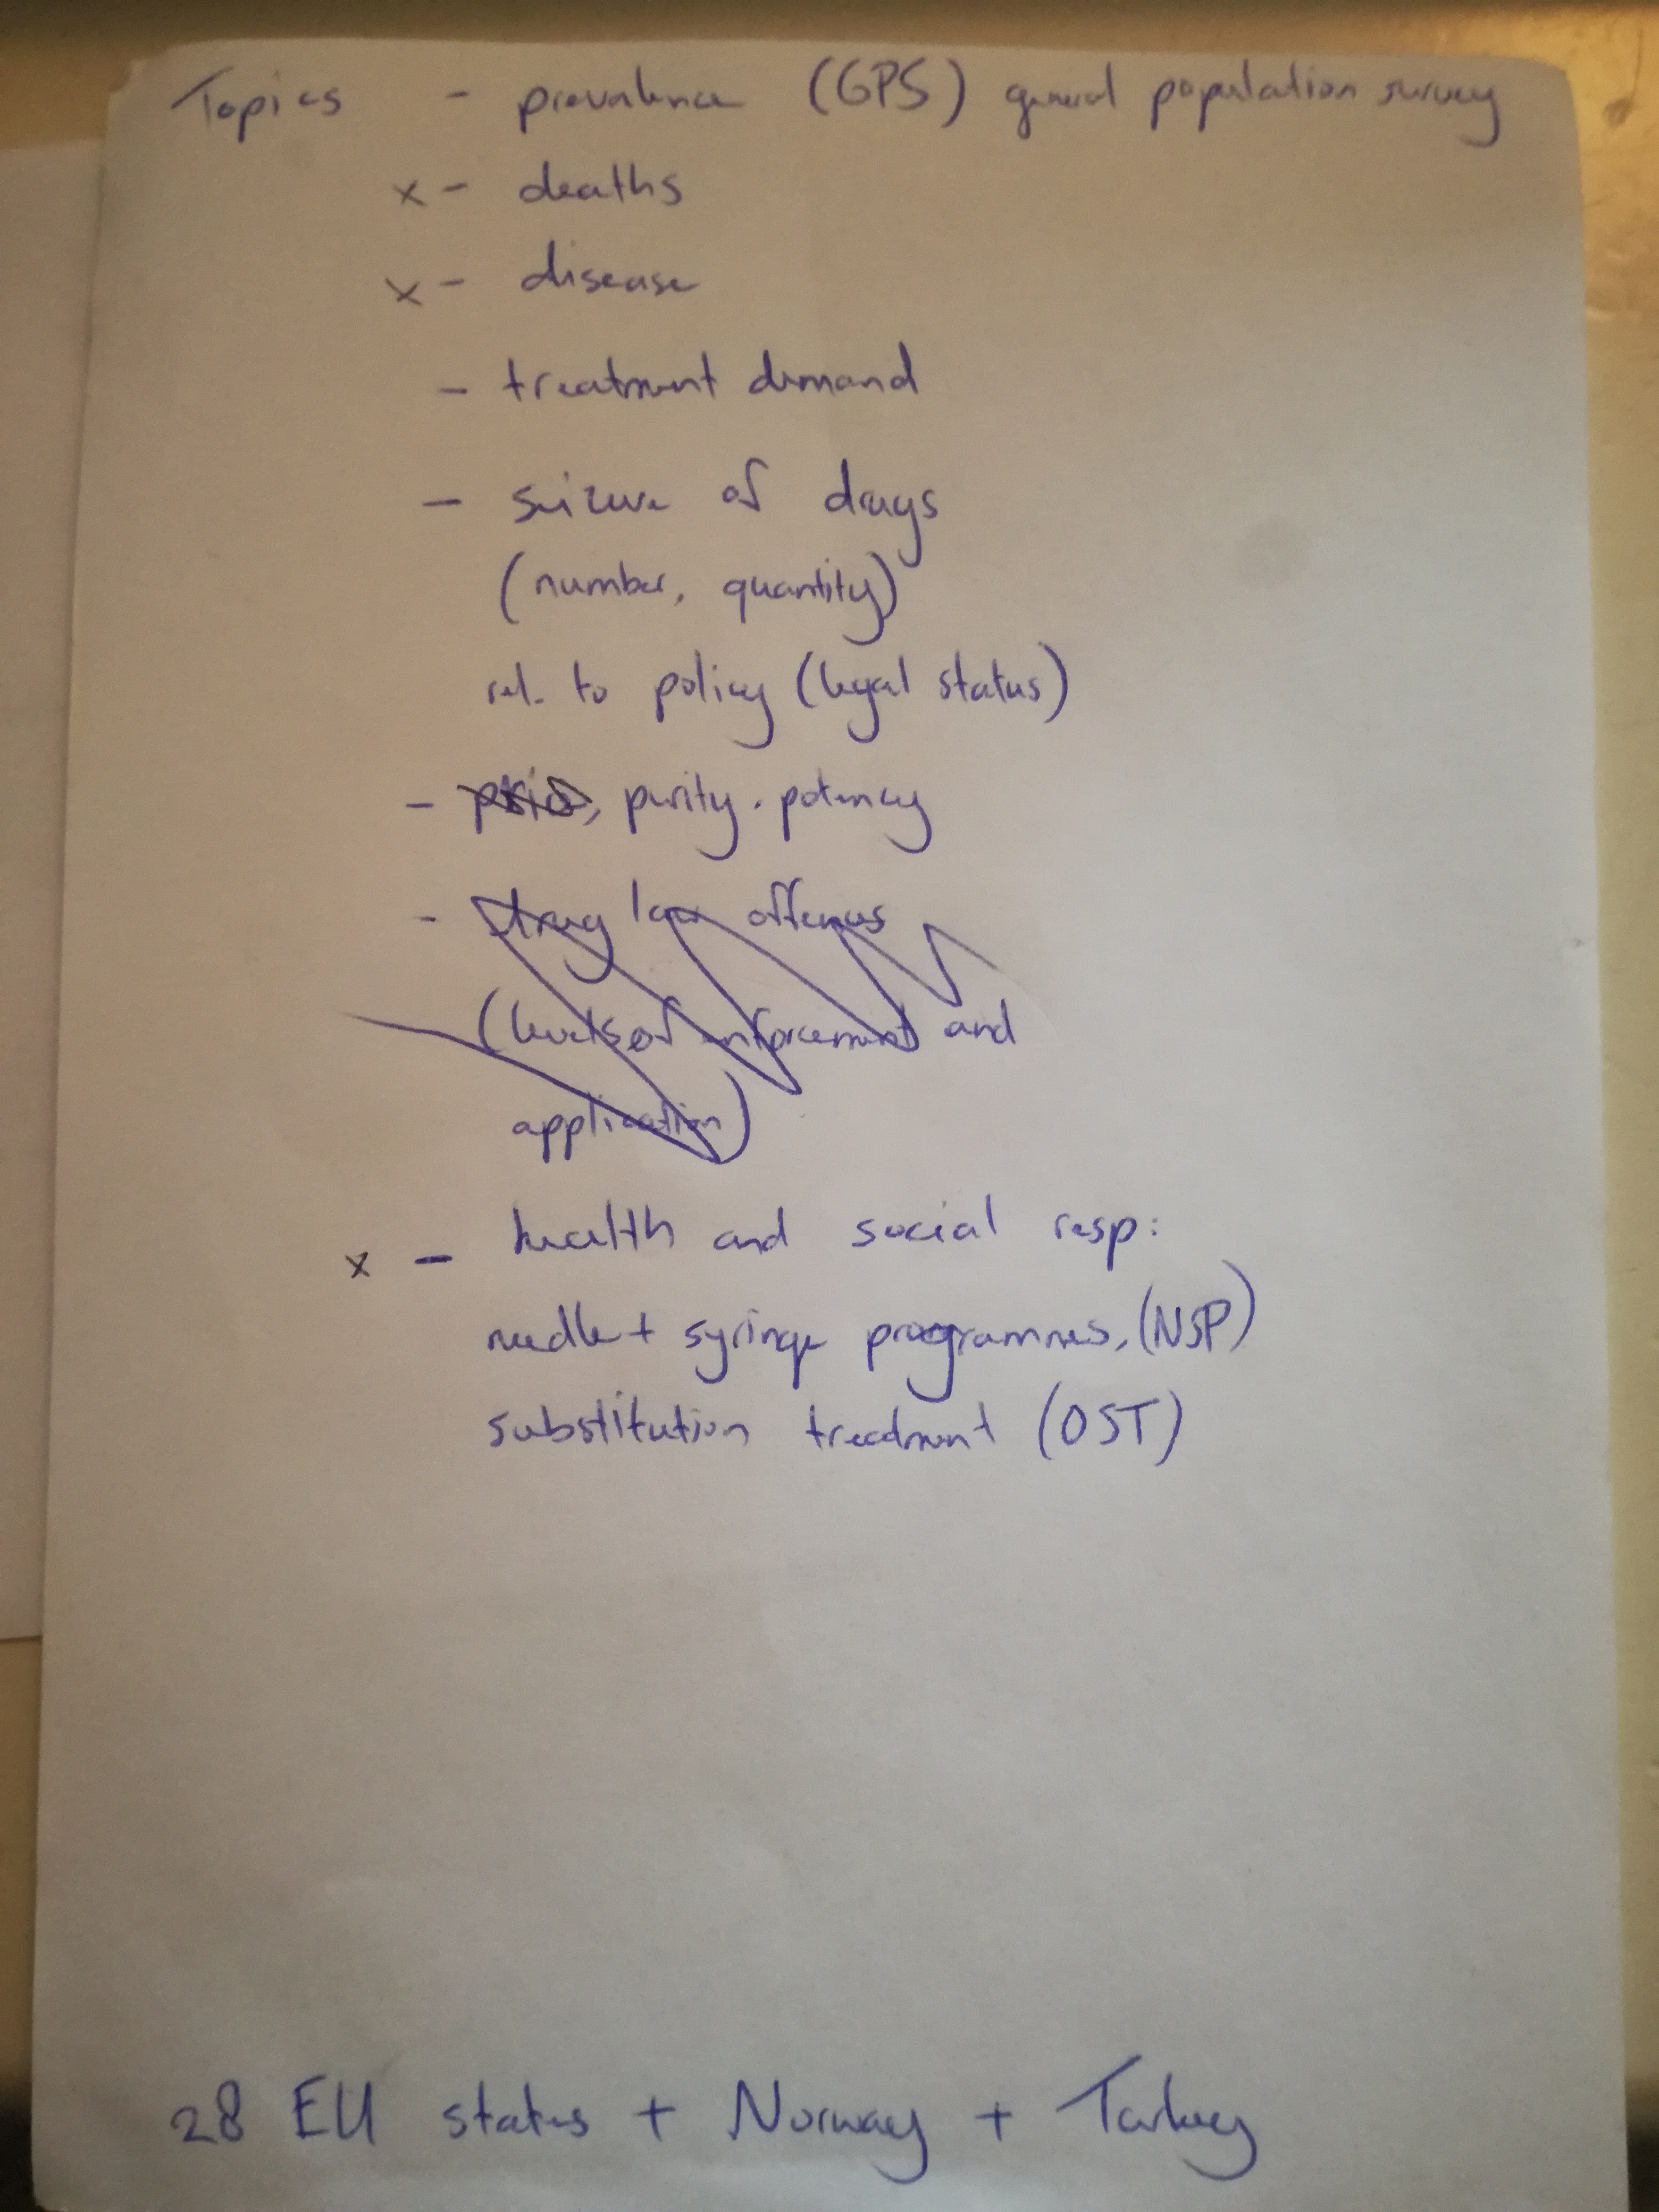 Topics - prevalence (GPS) general population survey
x - deaths
x - disease
- treatment demand
- seizure of drugs
(number, quantity)
rel. to policy (legal status)
- price, purity, potency
- drug law offenses
(levels of enforcement and
application)
x - health and social resp:
needle + syringe programmes, (NSP)
substitution treatment (OST)
28 EU states + Norway + Turkey